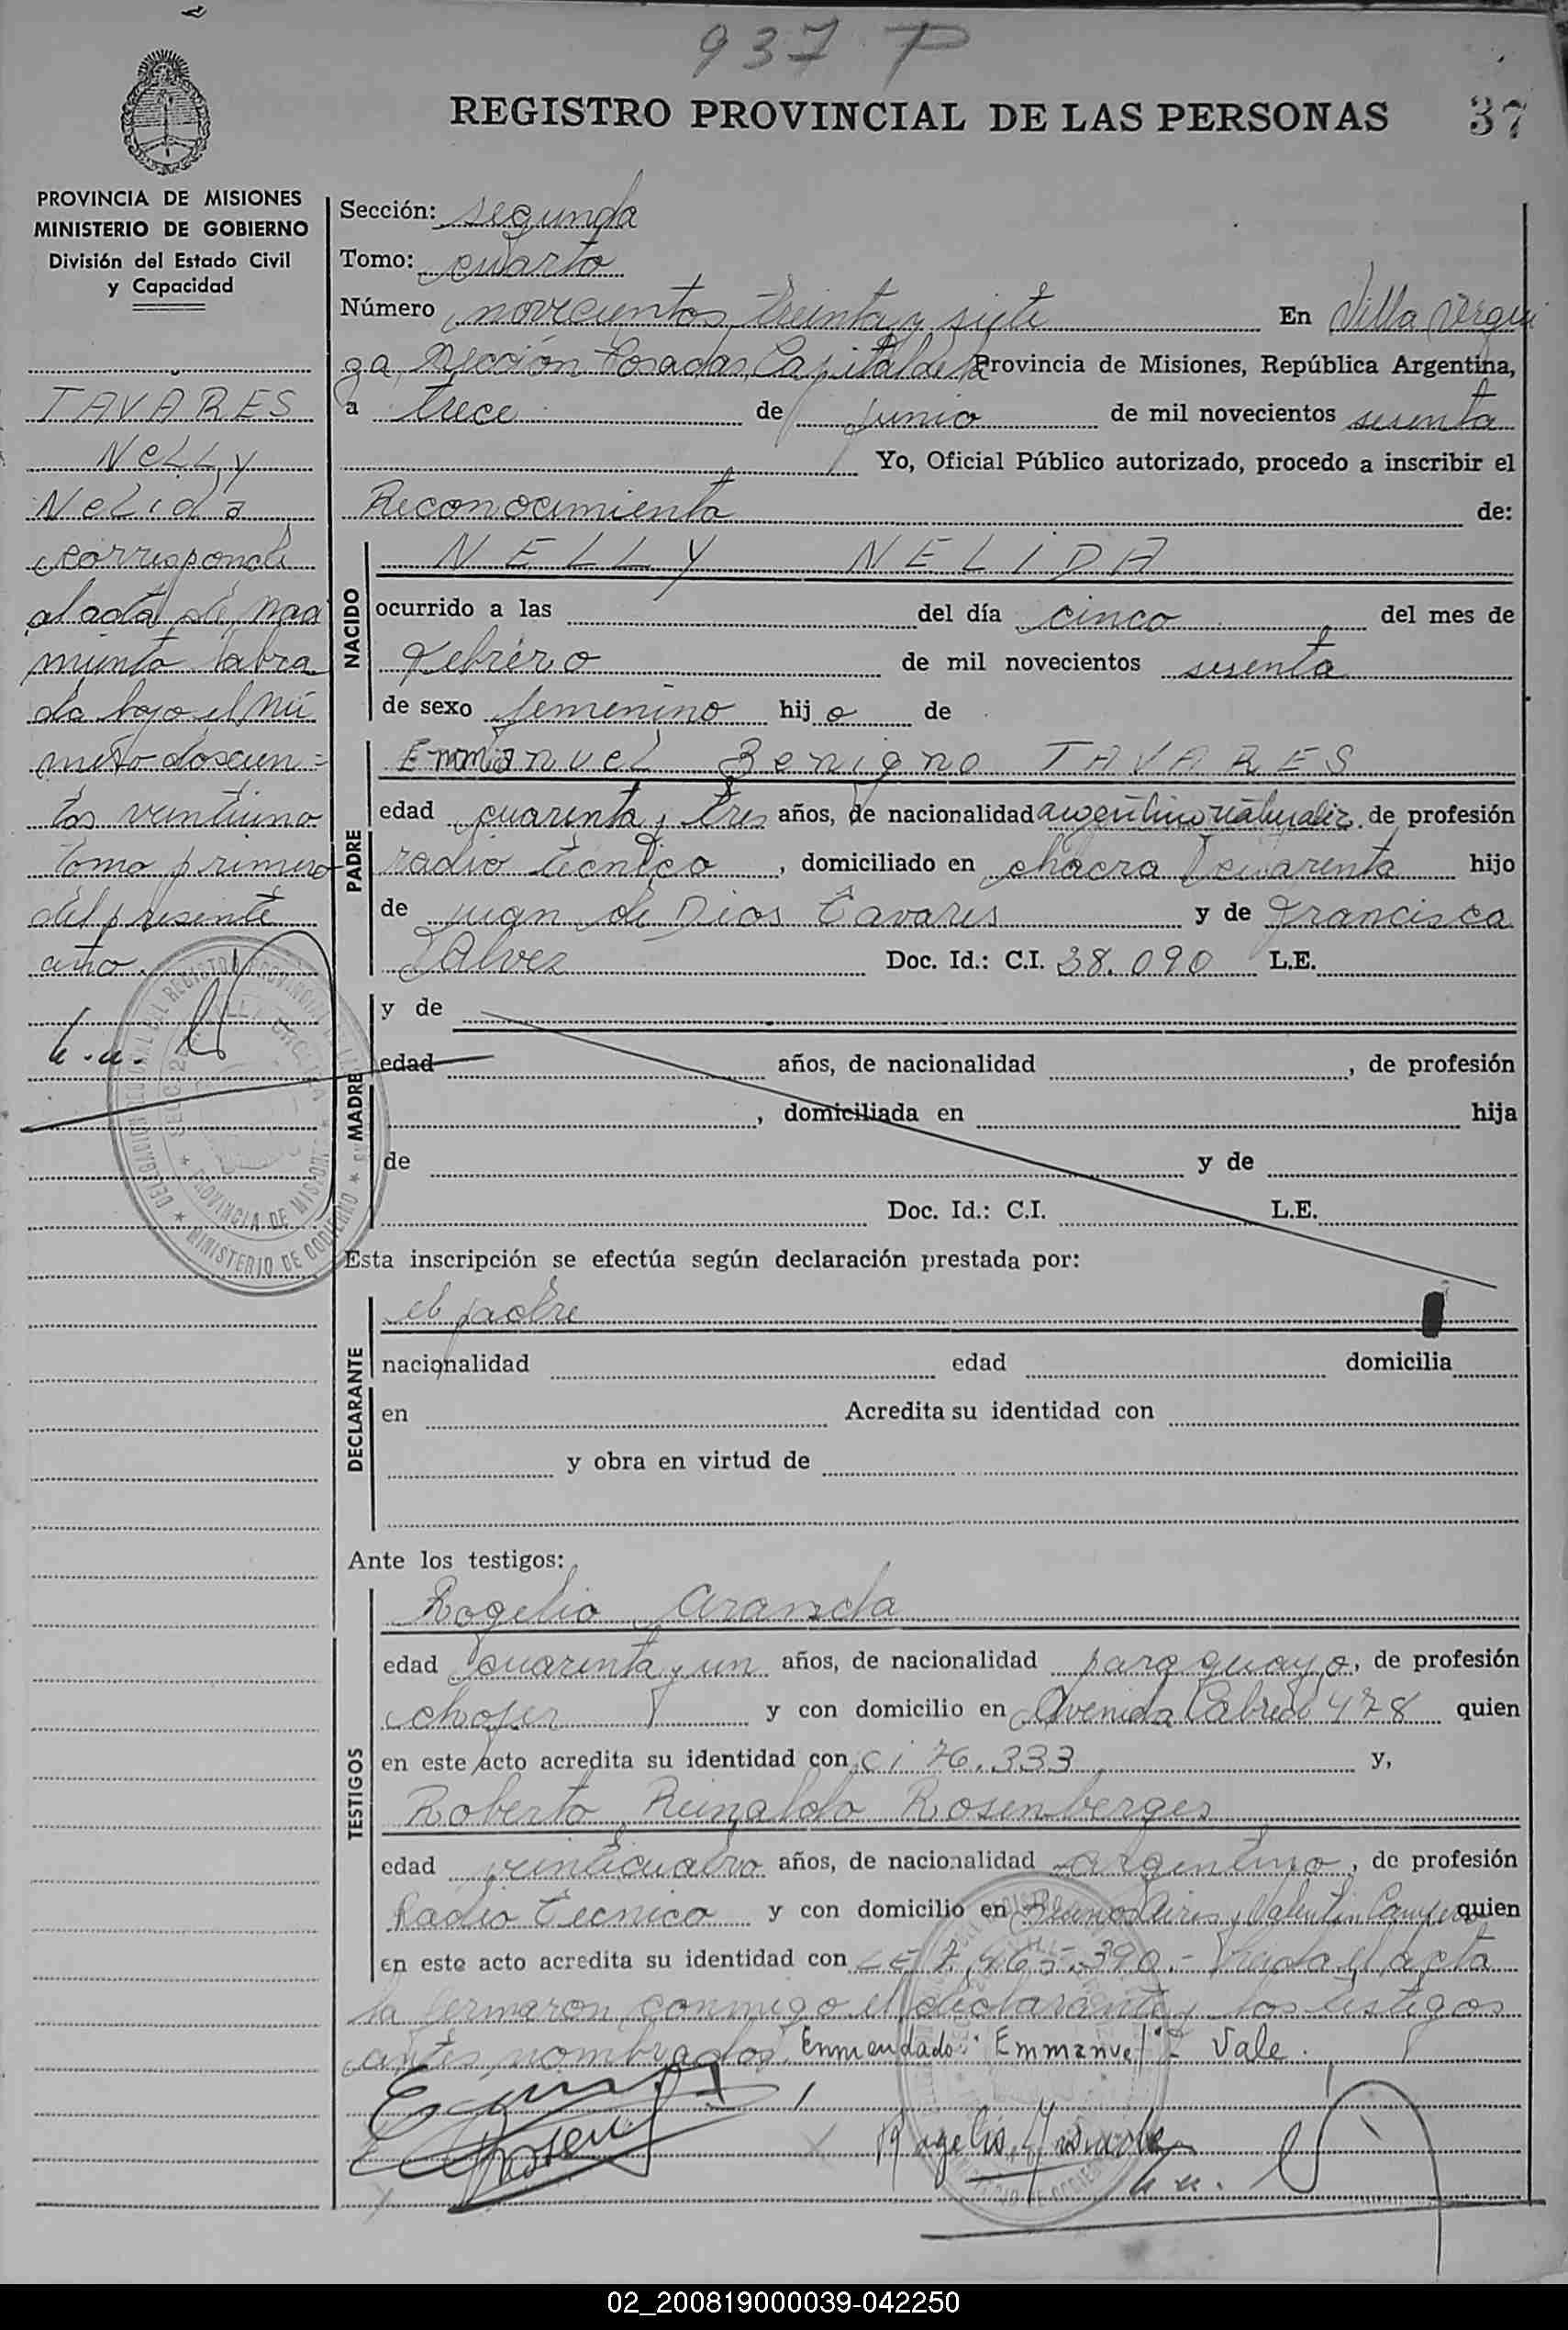 937 P
REGISTRO PROVINCIAL DE LAS PERSONAS 37
PROVINCIA DE MISIONES
MINISTERIO DE GOBIERNO
División del Estado Civil
y Capacidad
TAVARES
NeLLy
NeLida
corresponde
al acta de naci
miento labra
da bajo el nú
mero doscien=
tos veintiuno
tomo primero
del presente
año.
Sección: segunda
Tomo: cuarto
Número novecientos treinta y siete En Villa Urqui
za, Sección Posadas, Capital de la Provincia de Misiones, República Argentina,
a trece de junio de mil novecientos sesenta
Yo, Oficial Público autorizado, procedo a inscribir el
Reconocimiento de:
NACIDO
NELLY NELIDA
ocurrido a las del día cinco del mes de
Febrero de mil novecientos sesenta
de sexo femenino hij a de
PADRE
Emmanuel Benigno TAVARES
edad cuarenta y tres años, de nacionalidad argentino naturaliz. de profesión
radio técnico, domiciliado en chacra cuarenta hijo
de Juan de Dios Tavares y de Francisca
Alvez Doc. Id.: C.I. 38.090 L.E.
MADRE
y de
edad años, de nacionalidad , de profesión
, domiciliada en hija
de y de
Doc. Id.: C.I. L.E.
Esta inscripción se efectúa según declaración prestada por:
DECLARANTE
el padre
nacionalidad edad domicilia
en Acredita su identidad con
y obra en virtud de
Ante los testigos:
TESTIGOS
Rogelio Aranda
edad cuarenta y un años, de nacionalidad paraguayo, de profesión
chofer y con domicilio en Avenida Cabred 478 quien
en este acto acredita su identidad con ci 76.333 y,
Roberto Reinaldo Rosenberger
edad veinticuatro años, de nacionalidad argentino, de profesión
Radio Técnico y con domicilio en Buenos Aires y Valentín quien
en este acto acredita su identidad con LE 7.465.390.- el acta
la firmaron conmigo el declarante y los testigos
antes nombrados. Enmendado: "Emmanuel": Vale.
02_200819000039-042250